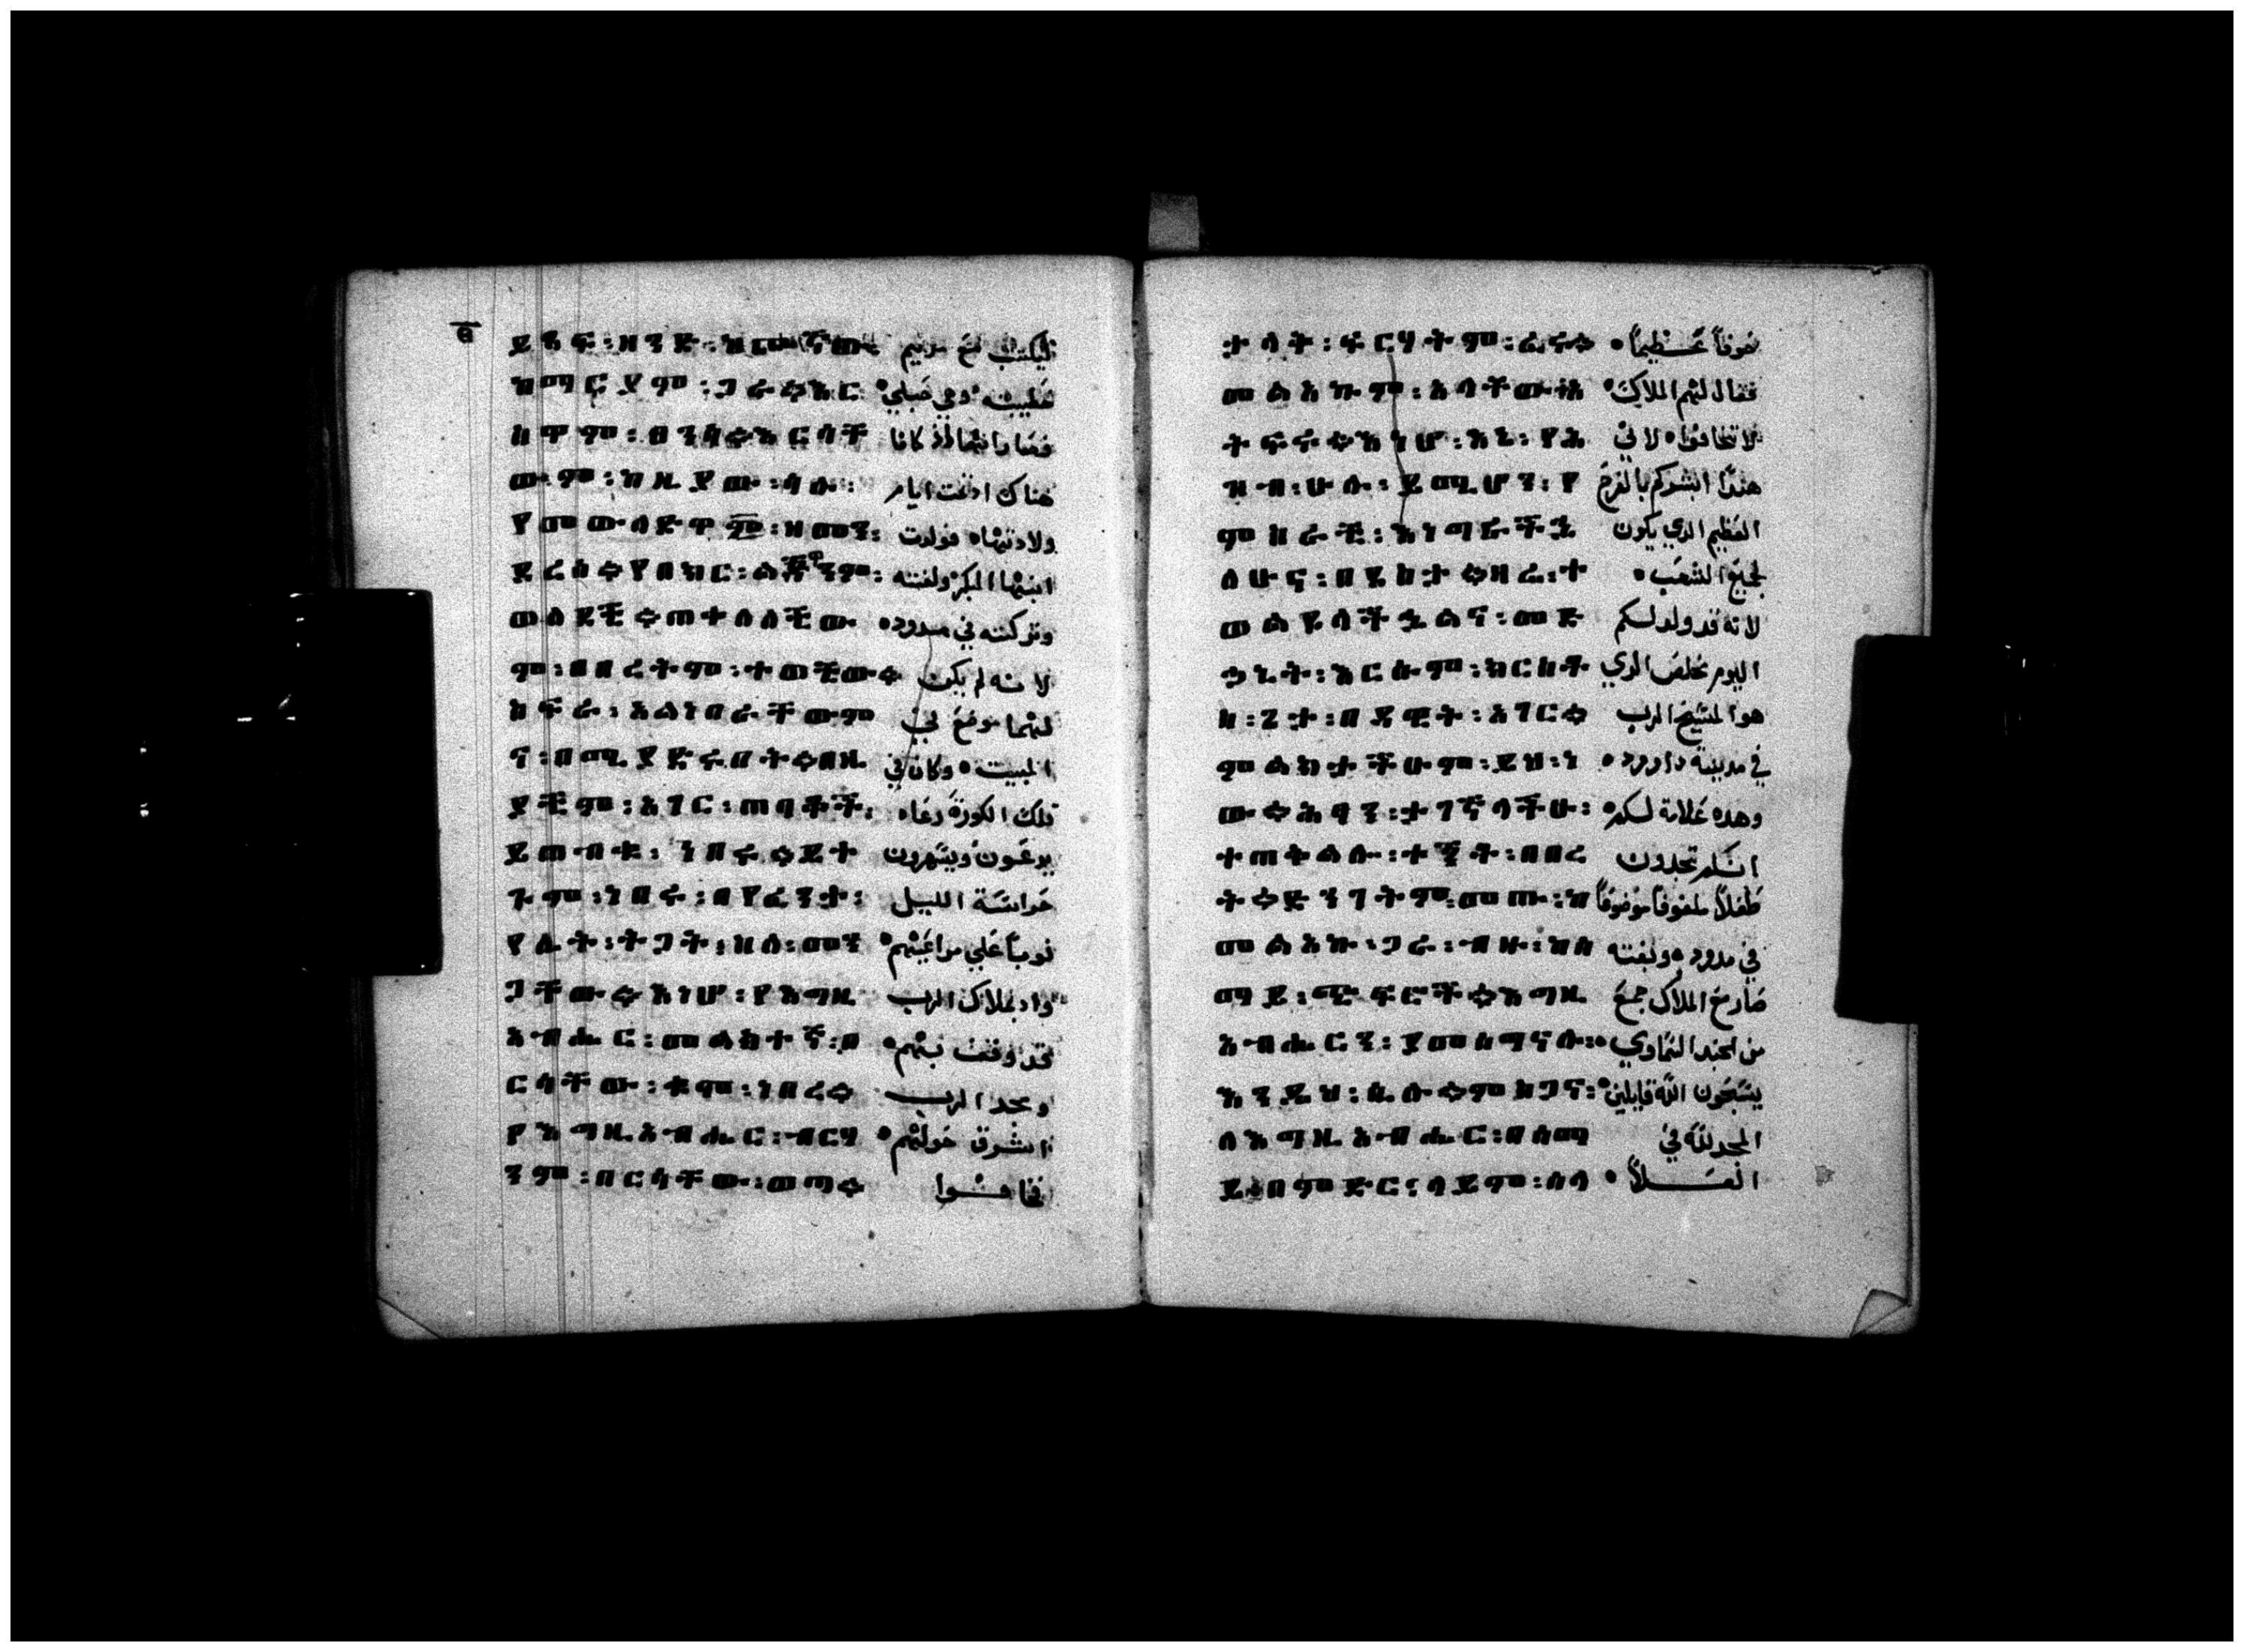 ይጻፍ፡ዘንድ፡ ليكتتب مع مريم
ከማርያም፡ጋራ።እር خطيبته وهي حبلي
ስዋም፡በነፍስ።እርሳቸ فلما هما اذ كانا
ውም፡ከዚያው፡ሳሉ፡ هناك اذ تمت ايام
የመውለድዋም፡ዘመን፡ ولادتها فولدت
ደረሰ።የበኵር፡ልጅዋንም፡ ابنها البكر ولفته
ወለደች።ጠቀለለችው وتركته في مدود
ም፡በበረትም፡ተወችው። لانه لم يكن
ስፍራ፡አልነበራቸውም لهما موضع في
ና፡በሚያድሩበት።በዚ البيت وكان في
ያችም፡አገር፡ጠባቆች፡ تلك الكورة رعاه
ይጠብቁ፡ነበሩ።ይተ يرعون ويسهرون
ጉም፡ነበሩ፡ حراسة الليل
የሌት፡ትጋት፡ከሰ፡መን نوباً علي مراعيهم
ጋቸው።እነሆ፡የእግዚ واذ بملاك الرب
አብሔር፡መልክተኛ፡በ قد وقف بهم
ርሳቸው፡ቁም፡ነበረ። ومجد الرب
የእግዚአብሔር፡ብርሃ اشرق حولهم
ንም፡በርሳቸው፡ወጣ። فخافوا
ፍርሃትም፡ራፍ። خوفاً عظيماً
መልአኩም፡አላቸው፡አ فقال لهم الملاك
ትፍሩ።እነሆ፡እኔ፡የሕ لا تخافوا لاني
ዝብ፡ሁሉ፡ይሚሆን፡የ هندا ابشركم بالفرح
ምስራች፡እነግራችኋ العظيم الدي يكون
ለሁና፡በደስታ።ዛሬ፡ተ لجميع الشعب
ወልዶላችኋልና፡መድ لانه قد ولد لكم
ኃኒት፡እርሱም፡ክርስቶ اليوم مخلص الدي
ስ፡ጌታ፡በዳዊት፡አገር። هو المسيح الرب
ምልክታችሁም፡ይህ፡ነ في مدينة داوود
ው።ሕፃን፡ታገኛላችሁ፡ وهده علامة لكم
ተጠቅልሎ፡ተኝቶ፡በበረ انكم تجدون
ት።ድንገትም፡መጡ፡ከ طفلاً ملفوفاً موضوعاً
መልአኩ፡ጋራ፡ብዙ፡ከሰ في مدود وبغته
ማይ፡ሚፍሮች።እግዚ صار مع الملاك جمع
አብሔርን፡የመሰግናሉ። من الجند السماوي
እንዲህ፡ሲሉ።ምስጋና፡ يسبحون الله قايلين
ለእግዚአብሔር፡በሰማ المجد لله في
ይ፡በምድር፡ሰላም፡ለሰ العلاً